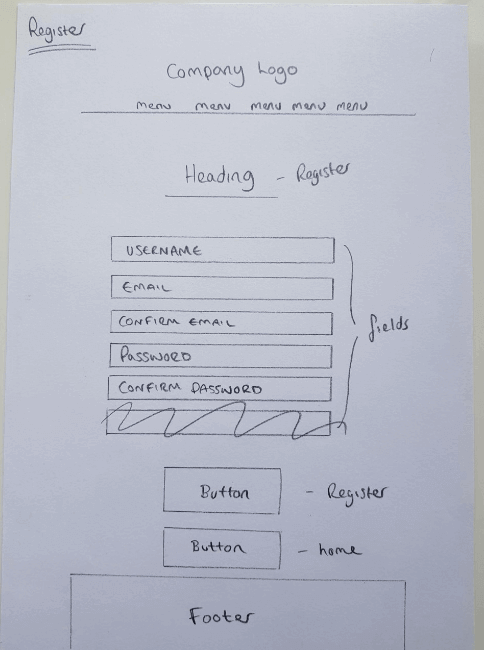 Register
Company Logo
menu menu menu menu menu
Heading - Register
USERNAME
EMAIL
CONFIRM EMAIL
fields
PASSWORD
CONFIRM PASSWORD
Button - Register
Button - home
Footer